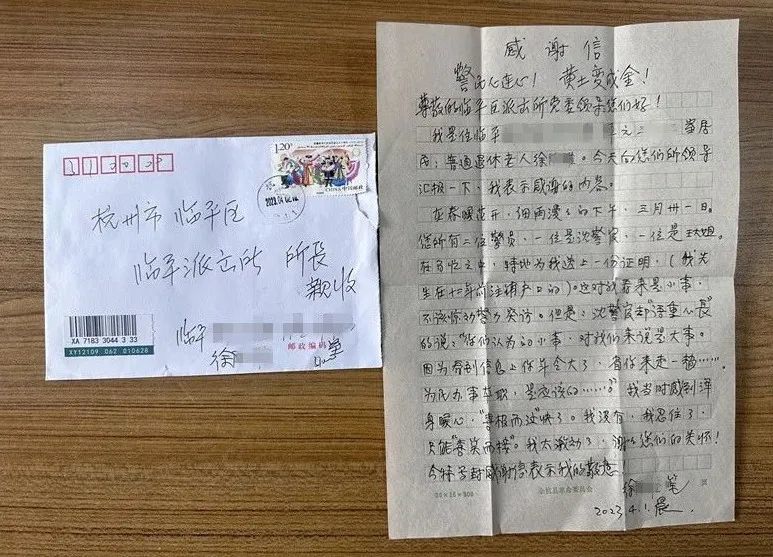 120
CHINA 中国邮政
2023.04.02.16
杭州市 临平区
临平派出所 所长
亲收
临平
徐
邮政编码
XA 7183 3044 3 33
XY12109 062 010628
感谢信
警民心连心！ 黄土变成金！
尊敬的临平区派出所党委领导您们好！
我是住临平 元三 当居
民：普通退休老人徐 。今天向您们所领导
汇报一下，我表示感谢的内容。
在春暖花开，细雨漫漫的下午，三月卅一日。
您所有二位警员，一位是沈警官，一位是王大姐。
在百忙之中，特地为我送上一份证明，（我先
生在十二年前注销户口的）。这对我看来是小事，
不该惊动警力来访。但是：沈警官却“语重心长”
的说：“你们认为的小事，对我们来说是大事。
因为看到信息上你年令大了，省你来走一趟……
为民办事在职，是应该的……。”我当时感到浑
身暖心，“喜极而泣”快了。我没有，我忍住了，
只能“喜笑而接”。我太激动了，谢谢您们的关怀！
今特写封感谢信表示我的敬意
徐 笔
2023.4.1.晨.
20×15=300
余杭县革命委员会
页